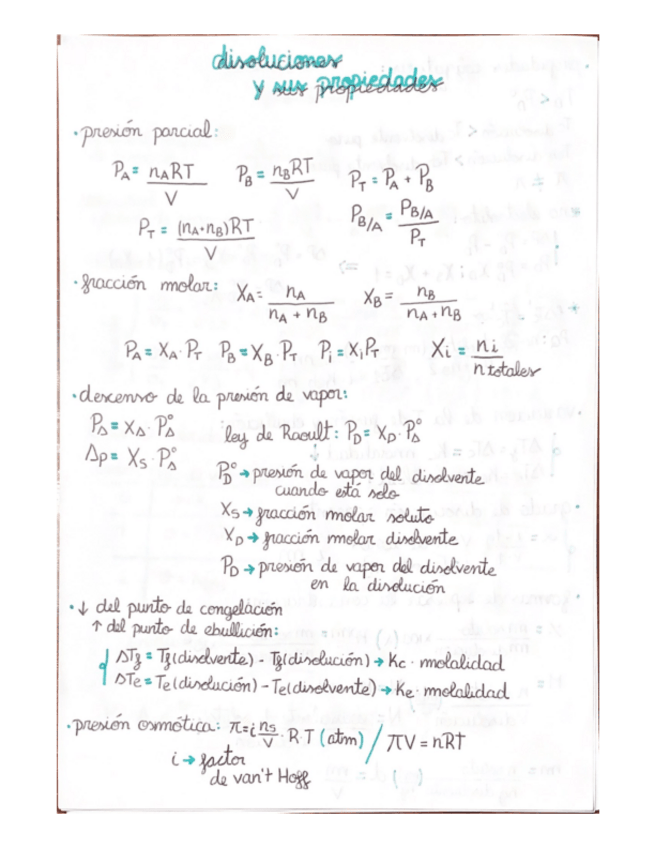 disoluciones
y sus propiedades
·presión parcial:
P_A = n_ART/V   P_B = n_BRT/V   P_T = P_A + P_B
P_T = (n_A·n_B)RT/V   P_B/A = P_B/A/P_T
·fracción molar: X_A = n_A/(n_A + n_B)   X_B = n_B/(n_A + n_B)
P_A = X_A · P_T   P_B = X_B · P_T   P_i = X_iP_T   X_i = n_i/n_totales
·descenso de la presión de vapor:
P_Δ = X_Δ · P_Δ°   ley de Raoult: P_D = X_D · P_Δ°
Δp = X_S · P_Δ°
P_D° → presión de vapor del disolvente
cuando está solo
X_S → fracción molar soluto
X_D → fracción molar disolvente
P_D → presión de vapor del disolvente
en la disolución
·↓ del punto de congelación
↑ del punto de ebullición:
ΔT_f = T_f(disolvente) - T_f(disolución) → Kc · molalidad
ΔTe = Te(disolución) - Te(disolvente) → Ke · molalidad
·presión osmótica: π = i n_s/V · R·T (atm) / πV = nRT
i → factor
de van't Hoff